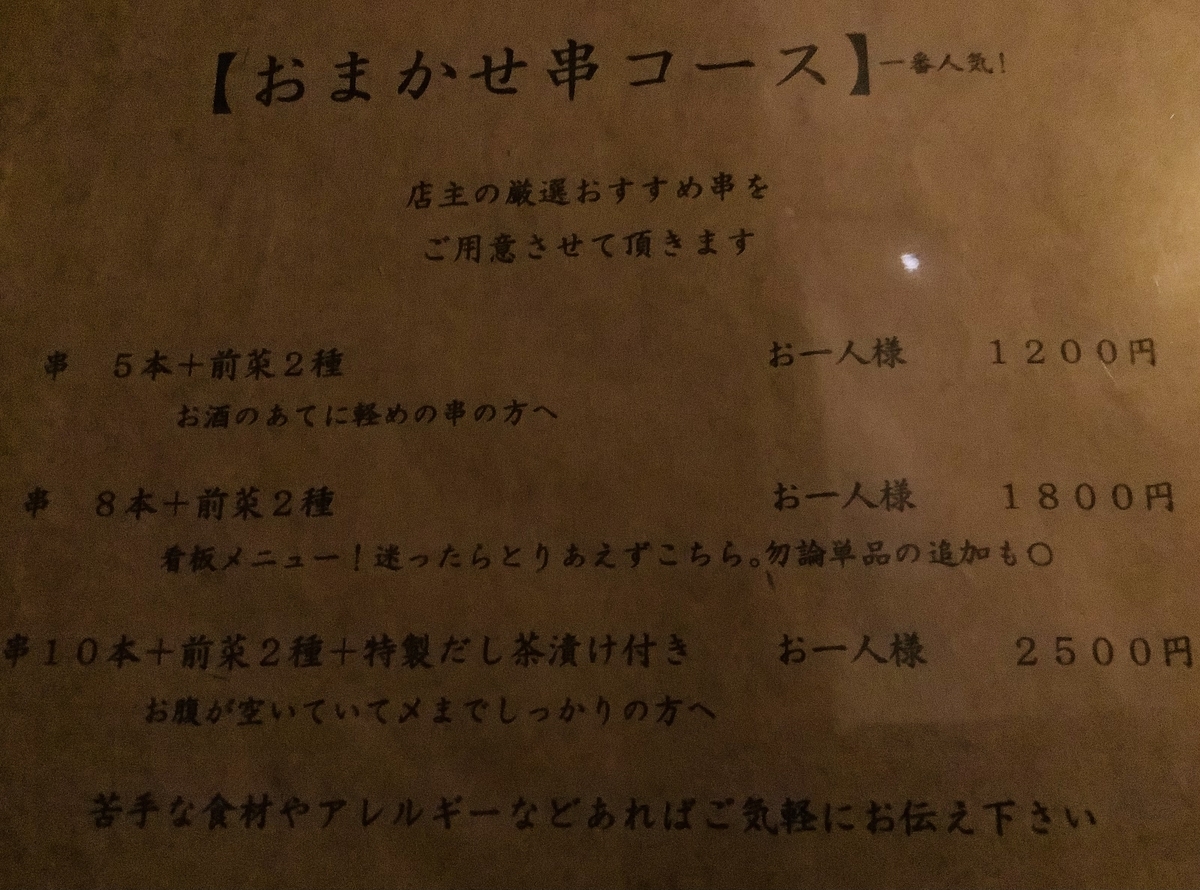 【おまかせ串コース】一番人気！
店主の厳選おすすめ串を
ご用意させて頂きます
串　５本＋前菜２種　お一人様　１２００円
お酒のあてに軽めの串の方へ
串　８本＋前菜２種　お一人様　１８００円
看板メニュー！迷ったらとりあえずこちら。勿論単品の追加も〇
串１０本＋前菜２種＋特製だし茶漬け付き　お一人様　２５００円
お腹が空いていて〆までしっかりの方へ
苦手な食材やアレルギーなどあればご気軽にお伝え下さい